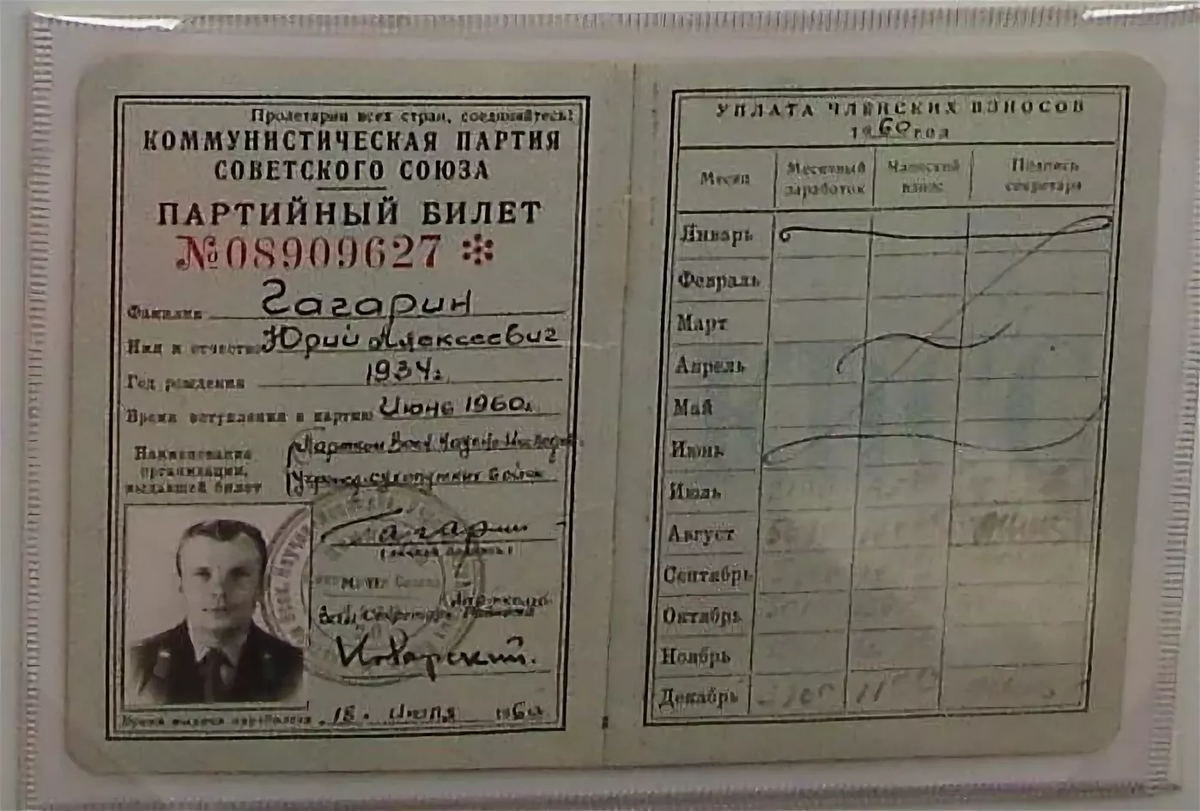 Пролетарии всех стран, соединяйтесь!
КОММУНИСТИЧЕСКАЯ ПАРТИЯ
СОВЕТСКОГО СОЮЗА
ПАРТИЙНЫЙ БИЛЕТ
№08909627
Фамилия Гагарин
Имя и отчество Юрий Алексеевич
Год рождения 1934г.
Время вступления в партию Июнь 1960г.
Наименование
организации,
выдавшей билет
Гагарин
(личная подпись)
18. Июля 1960
УПЛАТА ЧЛЕНСКИХ ВЗНОСОВ
1960 год
Месяц Месячный заработок Членский взнос Подпись секретаря
Январь
Февраль
Март
Апрель
Май
Июнь
Июль
Август
Сентябрь
Октябрь
Ноябрь
Декабрь